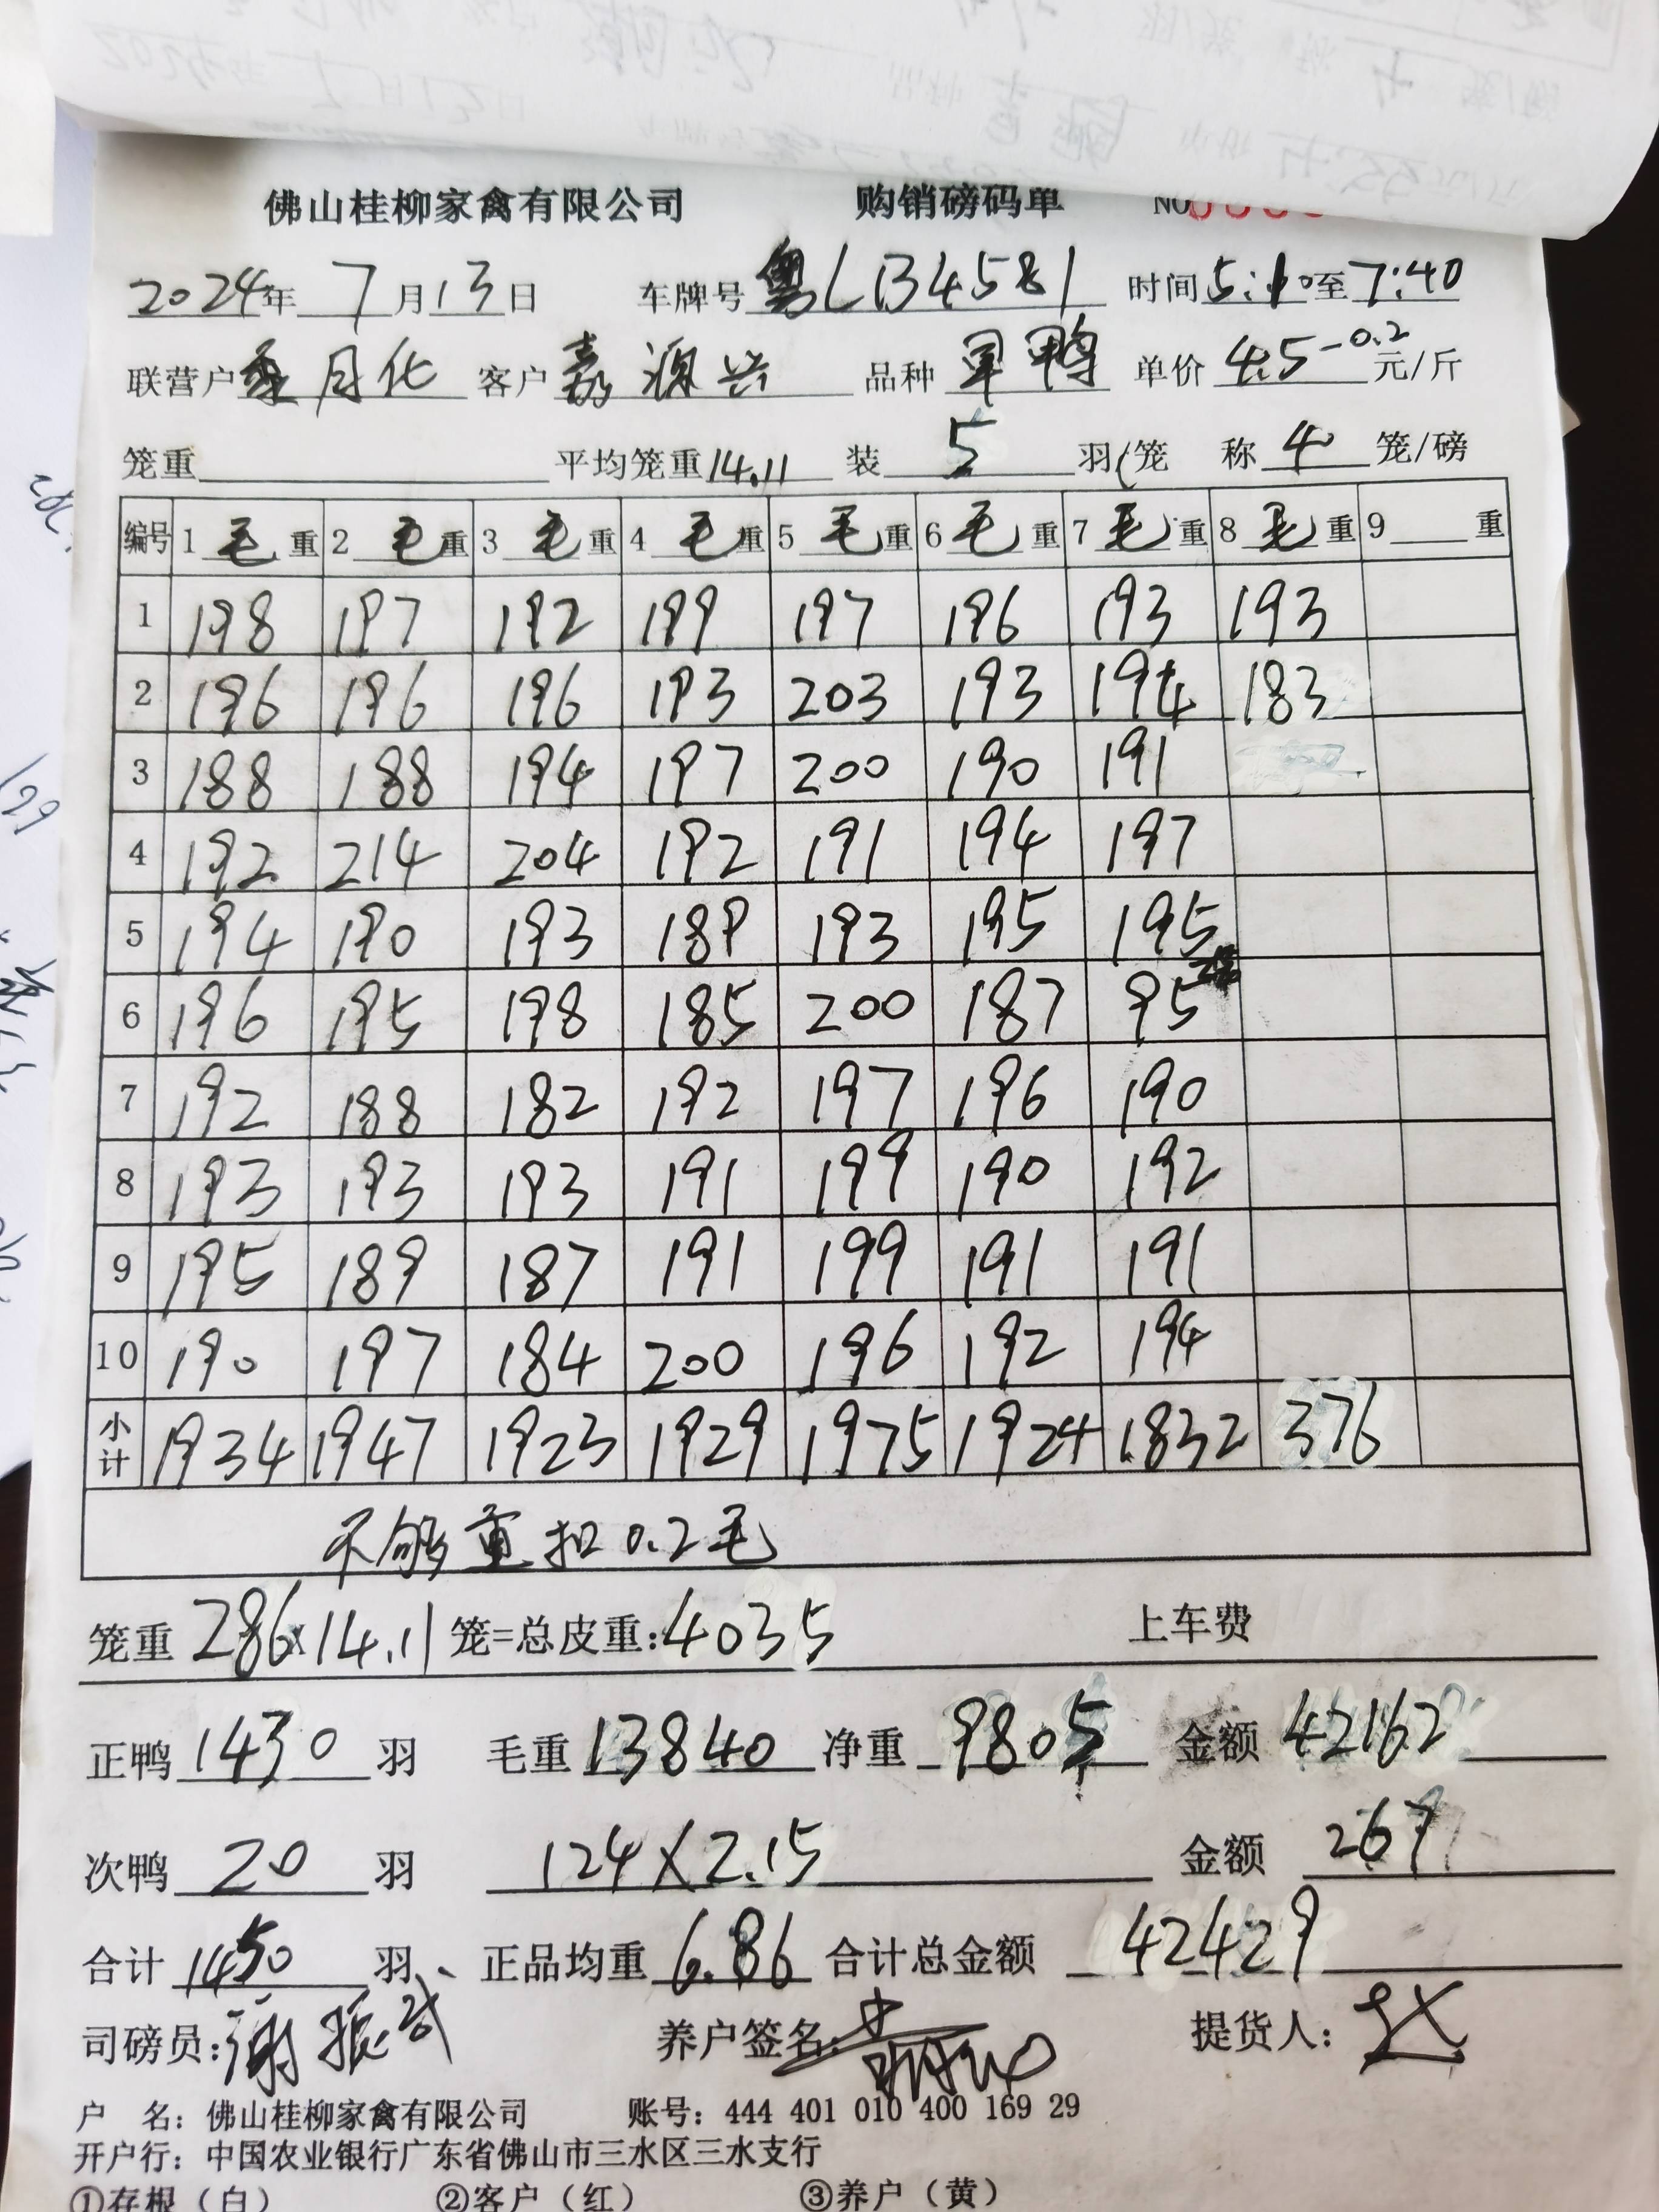 佛山桂柳家禽有限公司 购销磅码单 NO
2024年 7月13日 车牌号 粤LB34581 时间5:10至7:40
联营户 月化 客户 嘉源兴 品种 单鸭 单价 4.5-0.2 元/斤
笼重 平均笼重14.11 装 5 羽/笼 称 4 笼/磅
编号 1毛重 2毛重 3毛重 4毛重 5毛重 6毛重 7毛重 8毛重 9重
1 198 197 192 199 197 196 193 193
2 196 196 196 193 203 193 194 183
3 188 188 194 197 200 190 191
4 192 214 204 192 191 194 197
5 194 190 193 189 193 195 195
6 196 195 198 185 200 187 95
7 192 188 182 192 197 196 190
8 193 193 193 191 199 190 192
9 195 189 187 191 199 191 191
10 190 197 184 200 196 192 194
小计 1934 1947 1923 1929 1975 1924 1832 376
不够重扣0.2毛
笼重 286×14.11 笼=总皮重:4035 上车费
正鸭 1430 羽 毛重 13840 净重 9805 金额 42162
次鸭 20 羽 124×2.15 金额 267
合计 1450 羽 正品均重 6.86 合计总金额 42429
司磅员:谢振武 养户签名: 提货人:
户 名:佛山桂柳家禽有限公司 账号:444 401 010 400 169 29
开户行:中国农业银行广东省佛山市三水区三水支行
①存根(白) ②客户(红) ③养户(黄)